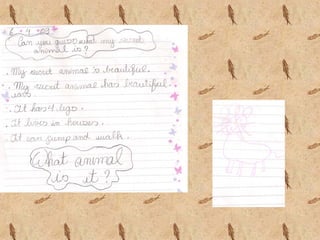 Can you guess what my secret
animal is?
. My secret animal is beautiful.
. My secret animal has beautiful
. It has 4 legs.
. It lives in houses.
. It can jump and walk.
What animal
is it?